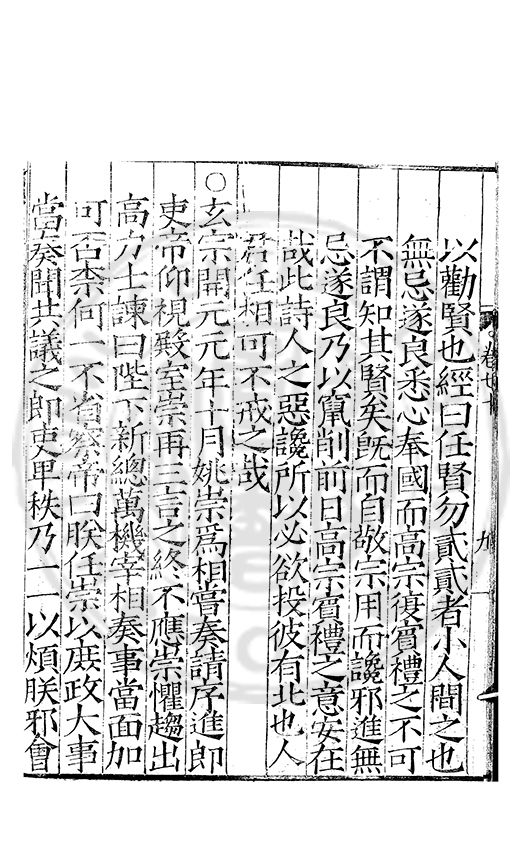 以勸賢也經曰任賢勿貳貳者小人間之也
無忌遂良悉心奉國而高宗復賓禮之不可
不謂知其賢矣旣而自敬宗用而讒邪進無
忌遂良乃以竄削前日高宗賓禮之意安在
哉此詩人之惡讒所以必欲投彼有北也人
君任相可不戒之哉
○玄宗開元元年十月姚崇爲相嘗奏請序進郎
吏帝仰視殿室崇再三言之終不應崇懼趨出
高力士諫曰陛下新總萬機宰相奏事當面加
可否柰何一不省察帝曰朕任崇以庶政大事
當奏聞共議之郎吏卑秩乃一一以煩朕邪會
九